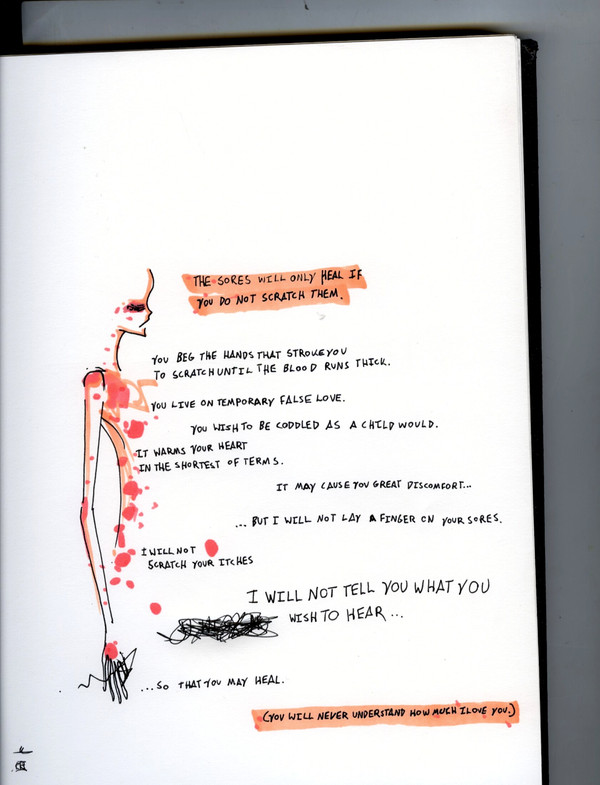 THE SORES WILL ONLY HEAL IF
YOU DO NOT SCRATCH THEM.
YOU BEG THE HANDS THAT STROKE YOU
TO SCRATCH UNTIL THE BLOOD RUNS THICK.
YOU LIVE ON TEMPORARY FALSE LOVE.
YOU WISH TO BE CODDLED AS A CHILD WOULD.
IT WARMS YOUR HEART
IN THE SHORTEST OF TERMS.
IT MAY CAUSE YOU GREAT DISCOMFORT...
...BUT I WILL NOT LAY A FINGER ON YOUR SORES.
I WILL NOT
SCRATCH YOUR ITCHES
I WILL NOT TELL YOU WHAT YOU
WISH TO HEAR...
...SO THAT YOU MAY HEAL.
(YOU WILL NEVER UNDERSTAND HOW MUCH I LOVE YOU.)